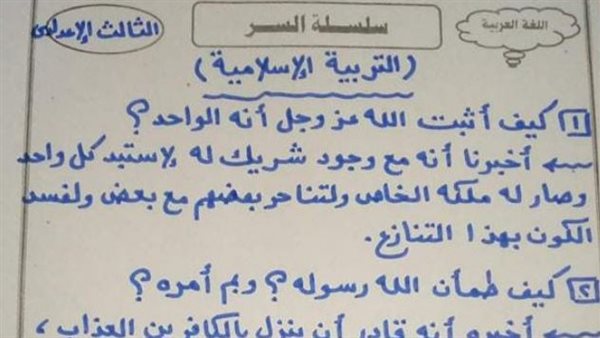 اللغة العربية
سلسلة السر
الثالث الإعدادى
(التربية الإسلامية)
١ كيف أثبت الله عز وجل أنه الواحد؟
أخبرنا أنه مع وجود شريك له لاستبد كل واحد
وصار له ملكه الخاص ولتناحر بعضهم مع بعض ولفسد
الكون بهذا التنازع.
٢ كيف طمأن الله رسوله؟ وبم أمره؟
أخبره أنه قادر أن ينزل بالكافرين العذاب،